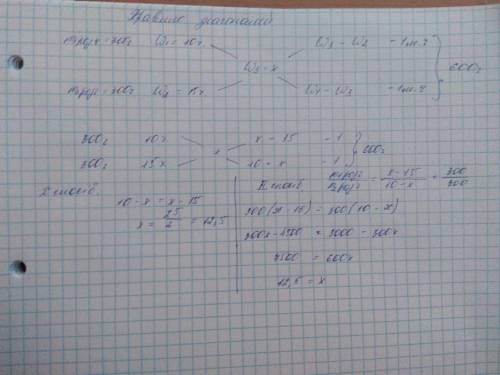 Правило диагоналей
mр-ра = 300г W₁ = 10% W₃ - W₂ - 1м.ч
W₃ = x 600г
mр-ра = 300г W₂ = 15% W₁ - W₃ - 1м.ч
300г 10% x - 15 - 1
x 600г
300г 15% 10 - x - 1
I способ.
10 - x = x - 15
x = 25/2 = 12,5
II способ
mр-ра1/mр-ра2 = x - 15/10 - x = 300/300
300(x - 15) = 300(10 - x)
300x - 4500 = 3000 - 300x
7500 = 600x
12,5 = x